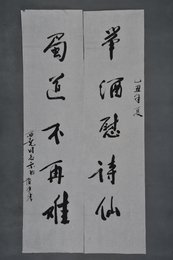 乙丑夏
举酒慰诗仙
蜀道不再难
同志